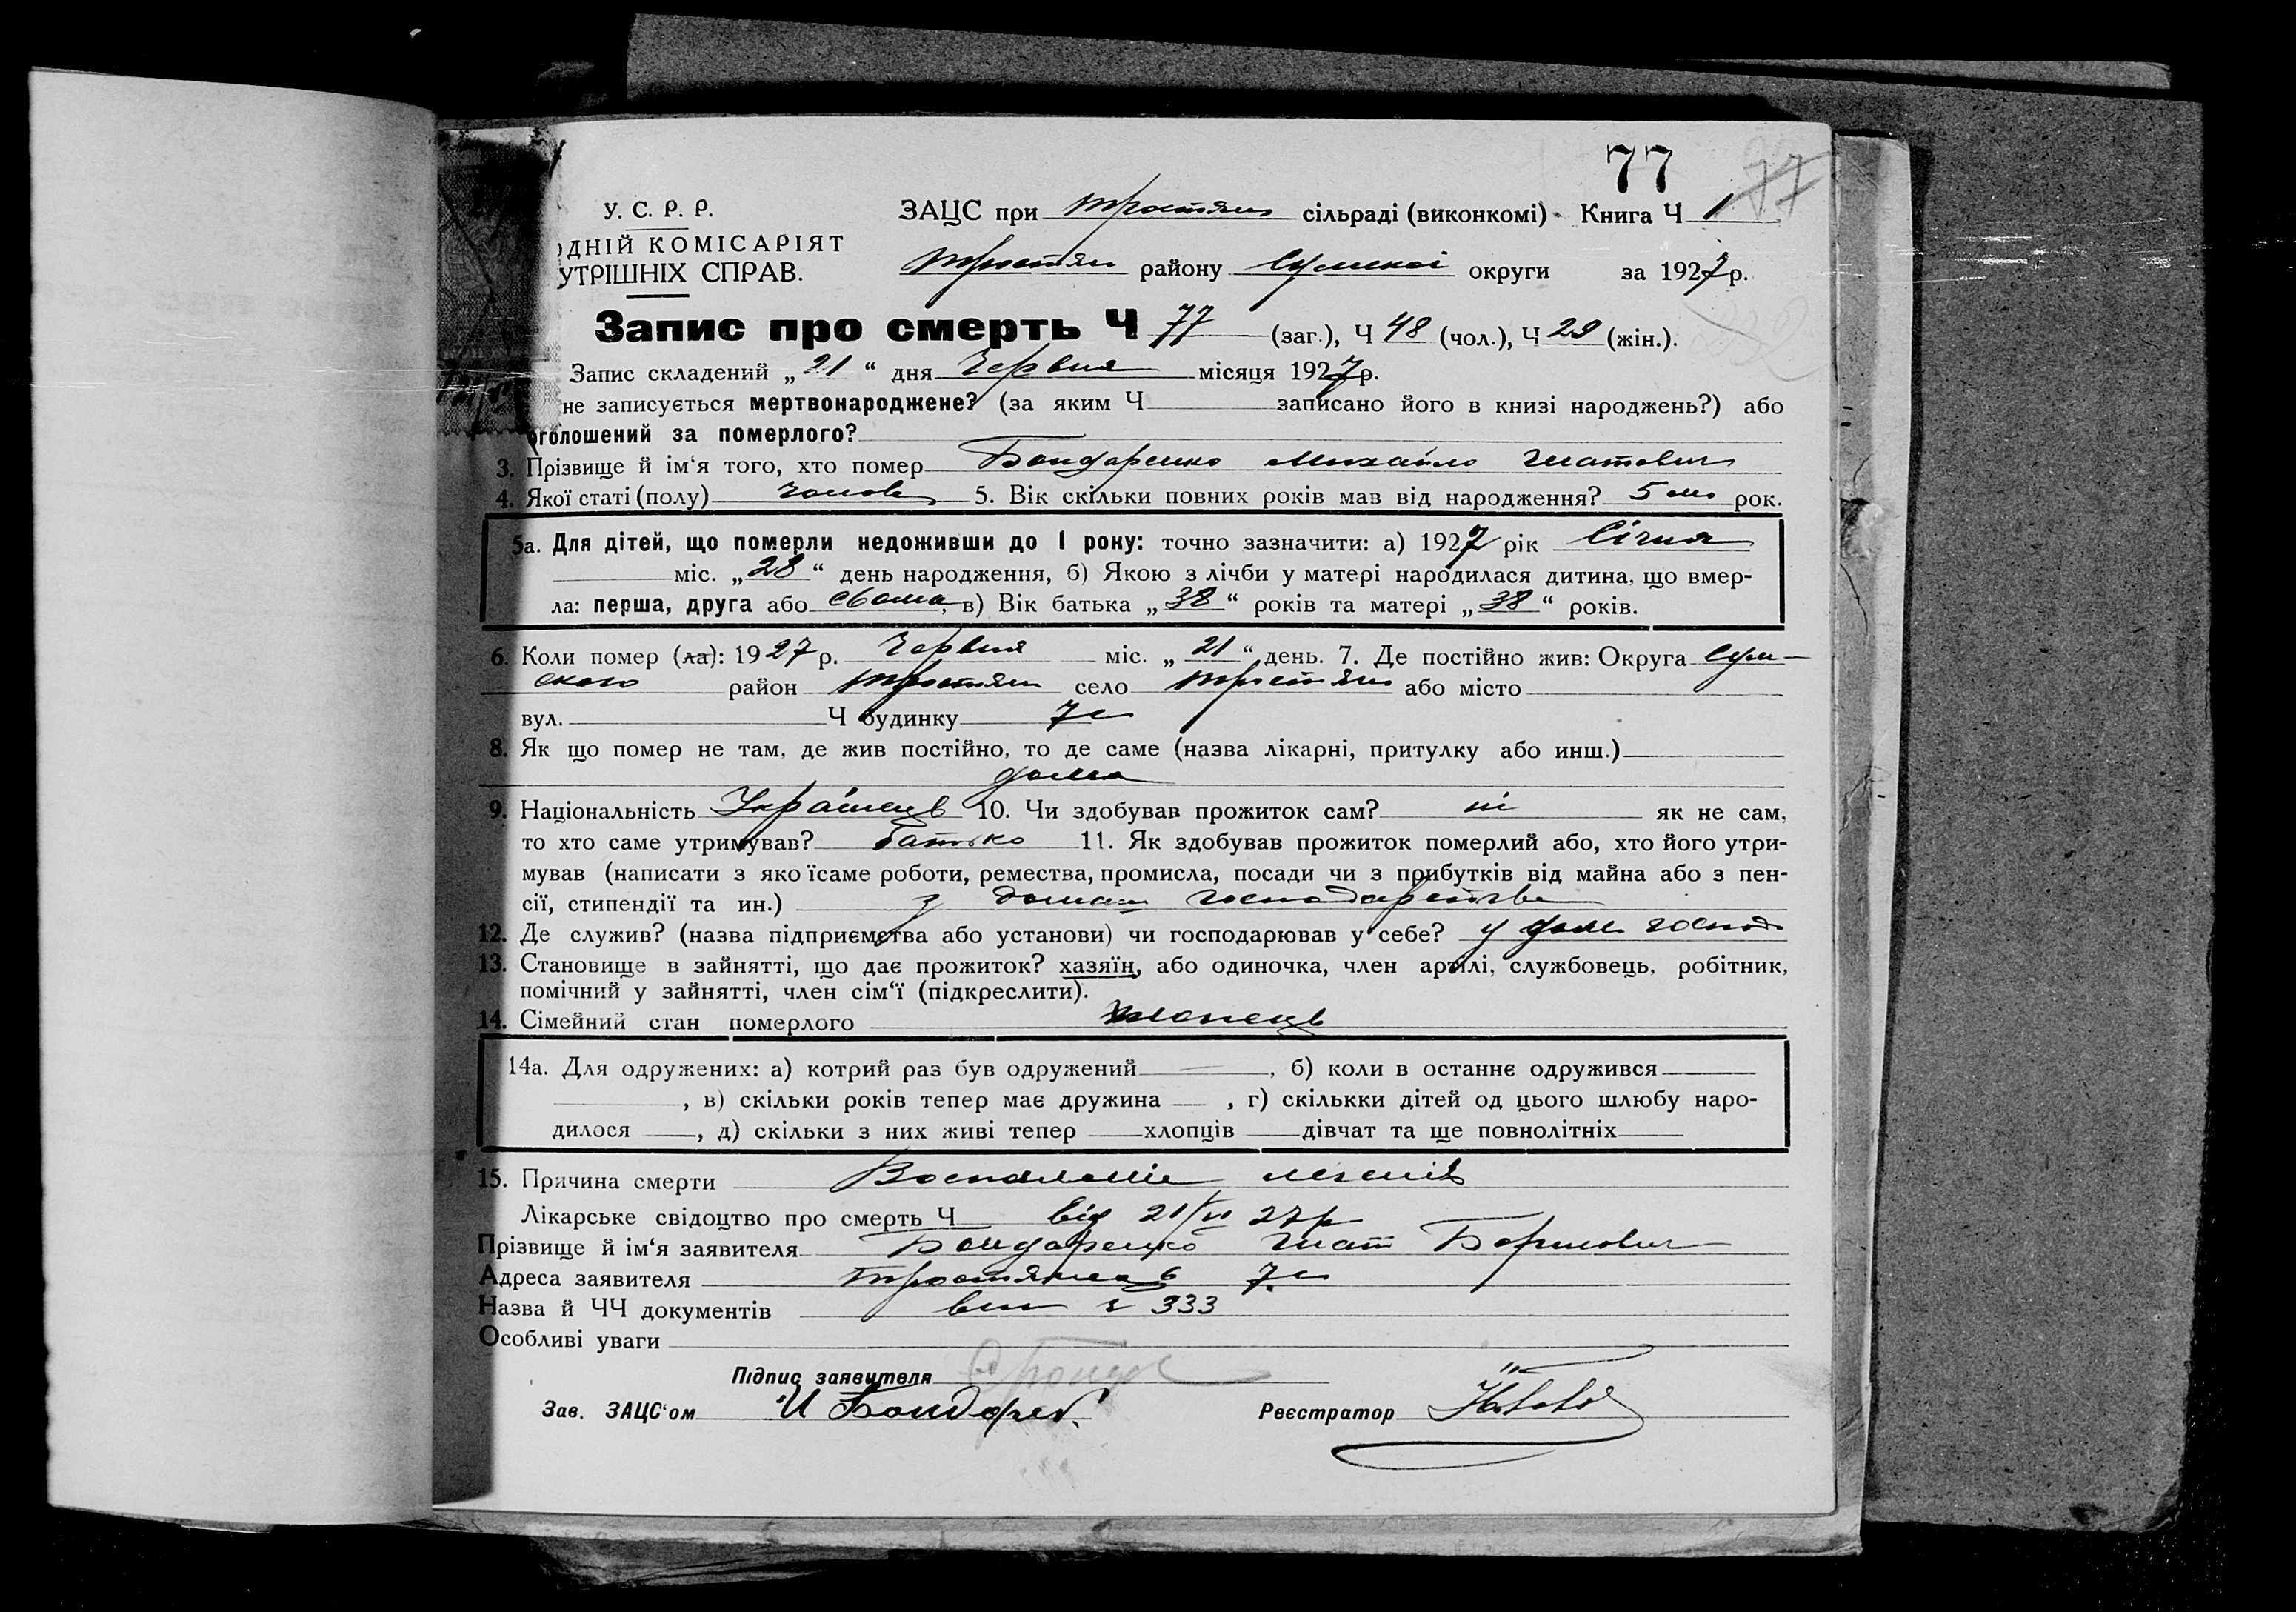 77 77
У. С. Р. Р. ЗАЦС при Тростян сільраді (виконкомі) Книга Ч 1
ОДНІЙ КОМІСАРІЯТ
УТРІШНІХ СПРАВ. Тростян району Сумської округи за 1927 р.
Запис про смерть Ч 77 (заг.), Ч 48 (чол.), Ч 29 (жін.).
Запис складений „ 21 “ дня Червня місяця 1927 р.
не записується мертвонароджене? (за яким Ч записано його в книзі народжень?) або
оголошений за померлого?
3. Прізвище й ім‘я того, хто помер Бондаренко Михайло Гнатович
4. Якої статі (полу) чолов 5. Вік скільки повних років мав від народження? 5 м рок.
5а. Для дітей, що померли недоживши до 1 року: точно зазначити: а) 1927 рік Січня
міс. „ 28 “ день народження, б) Якою з лічби у матері народилася дитина, що вмер-
ла: перша, друга або сьома, в) Вік батька „ 38 “ років та матері „ 38 “ років.
6. Коли помер (ла): 1927 р. Червня міс. „ 21 “ день. 7. Де постійно жив: Округа Сум-
ського район Тростян село Тростян або місто
вул. Ч будинку
8. Як що помер не там, де жив постійно, то де саме (назва лікарні, притулку або инш.)
дома
9. Національність Українець 10. Чи здобував прожиток сам? ні як не сам,
то хто саме утримував? батько 11. Як здобував прожиток померлий або, хто його утри-
мував (написати з яко їсаме роботи, ремества, промисла, посади чи з прибутків від майна або з пен-
сії, стипендії та ин.) з домаш господарства
12. Де служив? (назва підприємства або установи) чи господарював у себе? у дом господ
13. Становище в зайнятті, що дає прожиток? хазяїн, або одиночка, член артілі, службовець, робітник,
помічний у зайнятті, член сім‘ї (підкреслити).
14. Сімейний стан померлого хлопець
14а. Для одружених: а) котрий раз був одружений , б) коли в останнє одружився
, в) скільки років тепер має дружина , г) скількки дітей од цього шлюбу наро-
дилося , д) скільки з них живі тепер хлопців дівчат та ще повнолітніх
15. Причина смерти Воспаленіе легенів
Лікарське свідоцтво про смерть Ч від 21/VI 27 р
Прізвище й ім‘я заявителя Бондаренко Гнат Борисович
Адреса заявителя Тростянець
Назва й ЧЧ документів 333
Особливі уваги
Підпис заявителя
Зав. ЗАЦС‘ом И Бондарев Реєстратор